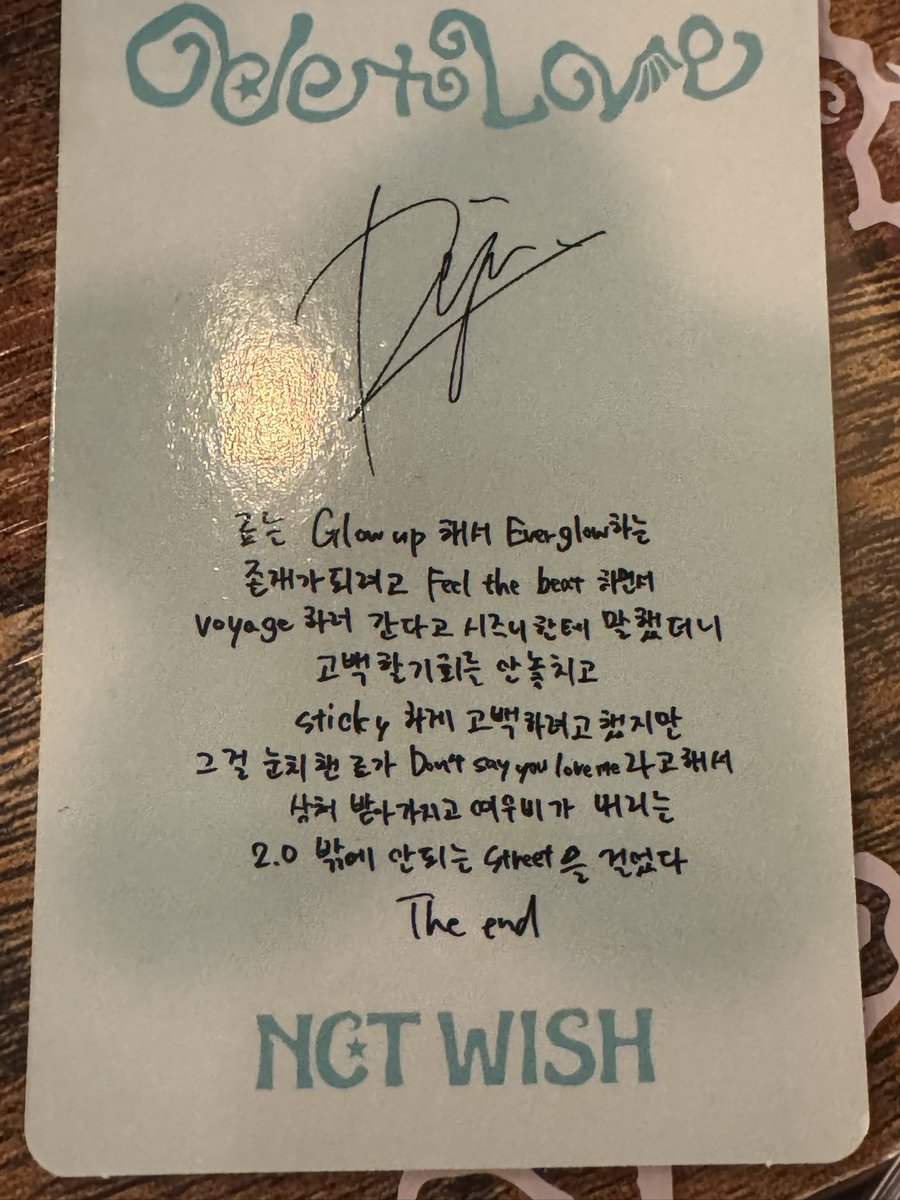 Ode to Love
료는 Glow up 해서 Everglow하는
존재가 되려고 Feel the beat 하면서
voyage 하러 간다고 시즈니한테 말했더니
고백할 기회를 안놓치고
sticky 하게 고백하려고 했지만
그걸 눈치챈 료가 Don't say you love me 라고해서
상처 받아가지고 여우비가 내리는
2.0 밖에 안되는 street을 걸었다
The end
NCT WISH